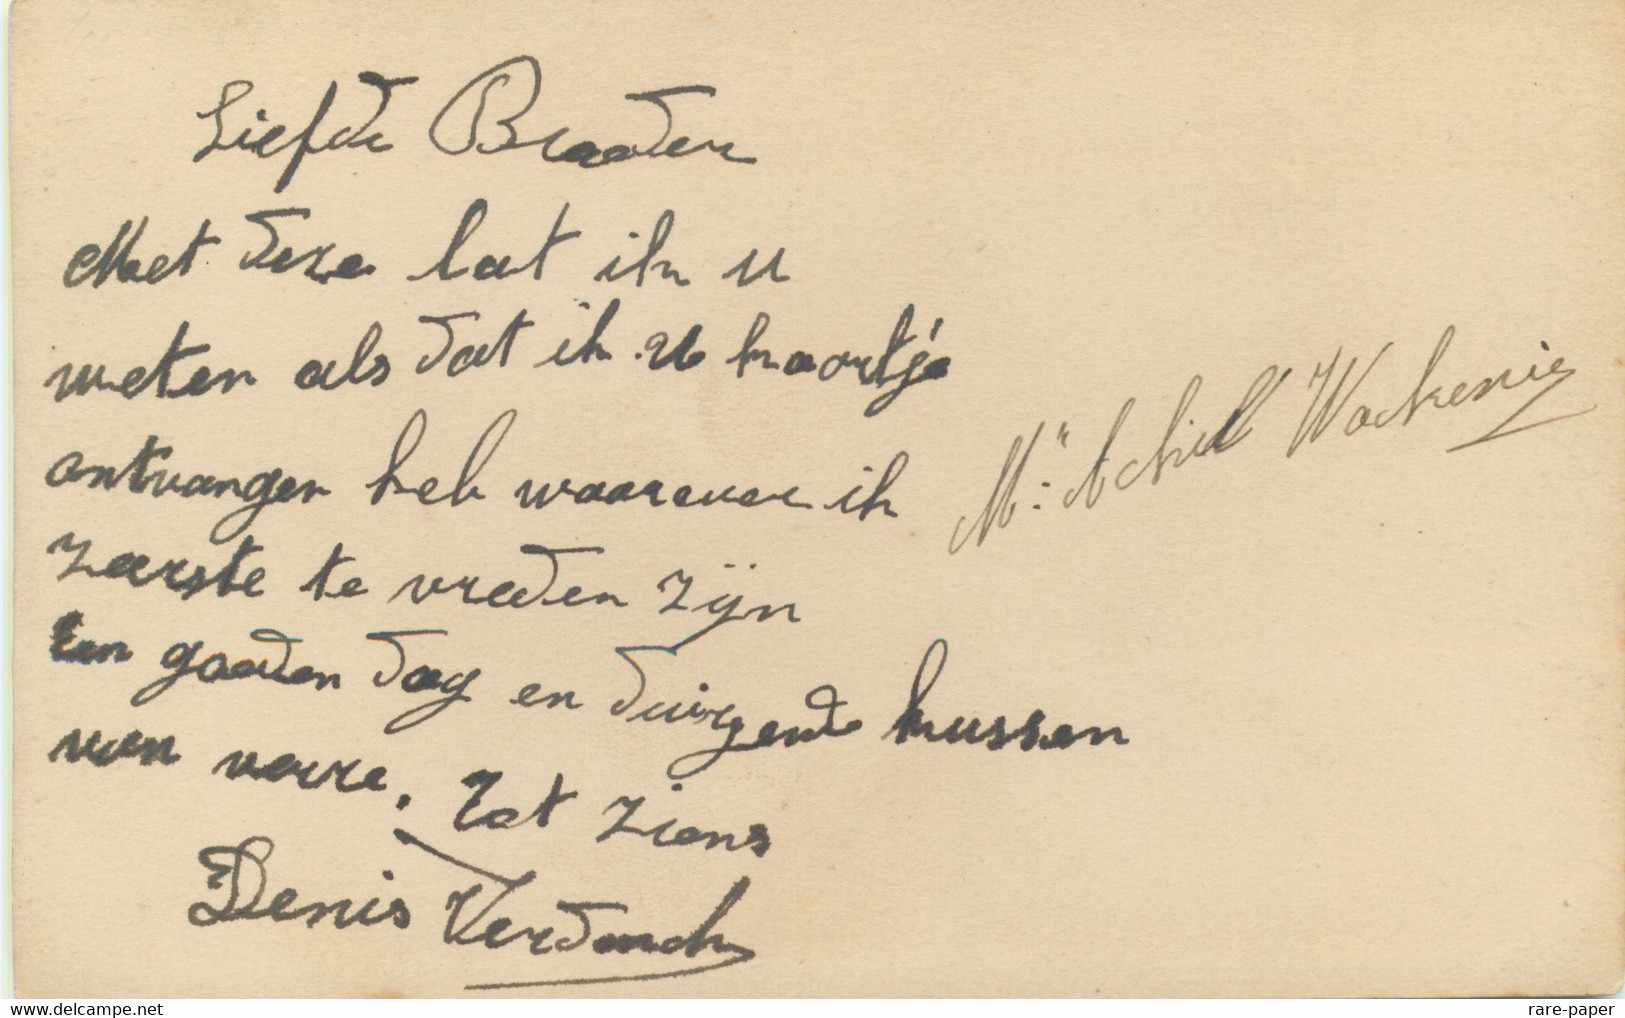 Liefde Broeder
Met deze lat ik u
weten als dat ik u kaortje
ontvangen heb waarever ik
zeerste te vreden zijn
Een goeden dag en duizende kussen
van verre. Tot ziens
Denis Verdonck
Mr: Achiel Wackenie
delcampe.net
rare-paper